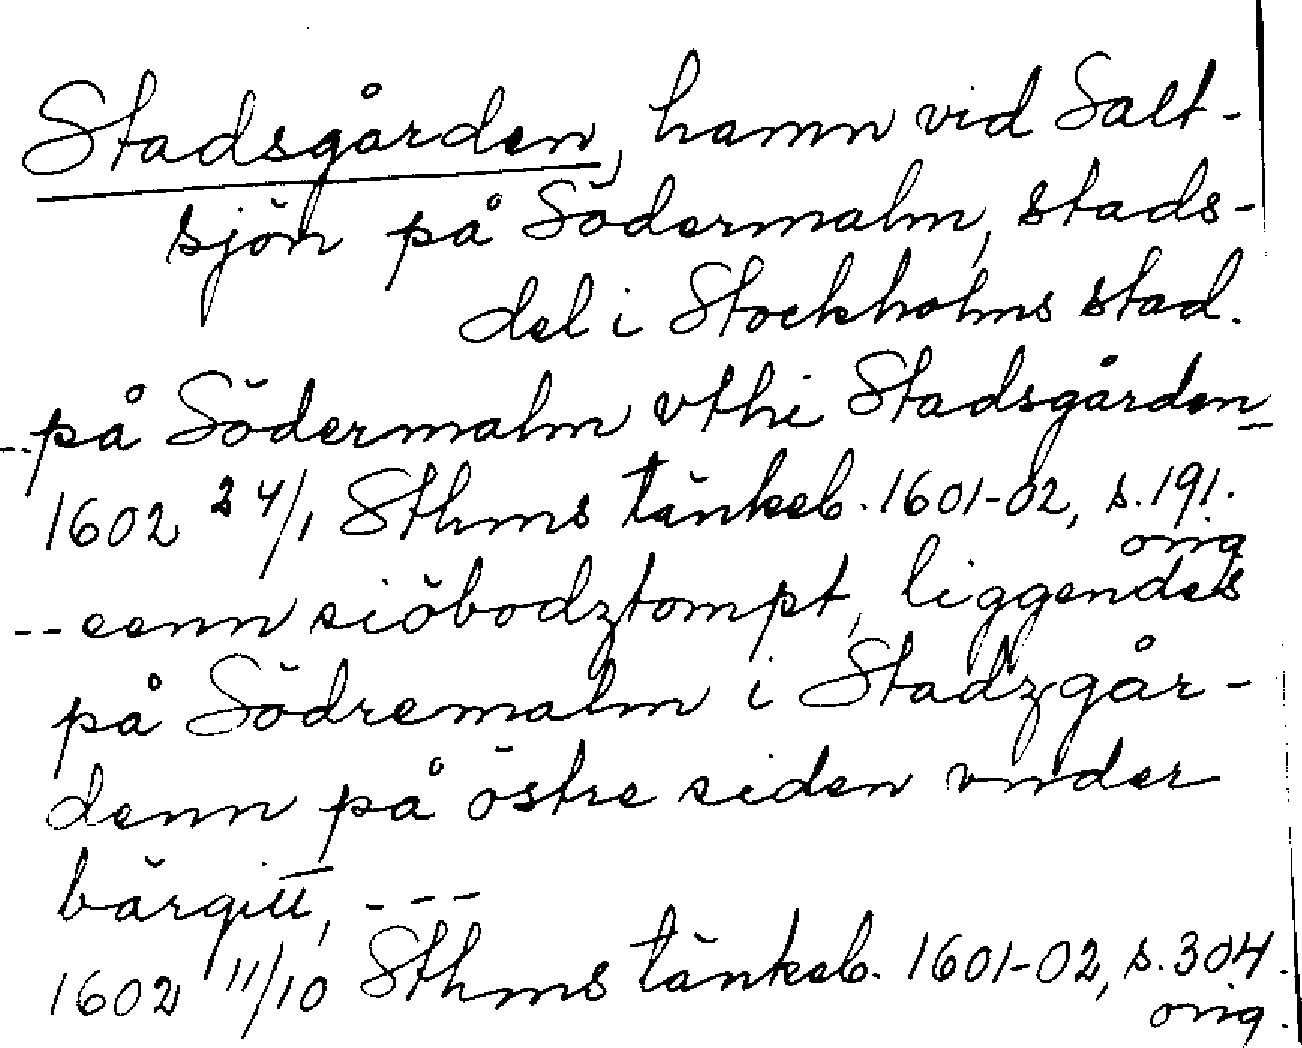 Stadsgården, hamn vid Salt-
sjön på Södermalm, stads-
del i Stockholms stad.
--på Södermalm vthi Stadsgården--
1602 24/1 Sthms tänkeb. 1601-02, s. 191.
orig
--eenn siöbodztompt, liggendes
på Södremalm i Stadzgår-
denn på östre siden vnder
bärgitt, ---
1602 11/10 Sthms tänkeb. 1601-02, s. 304.
orig.